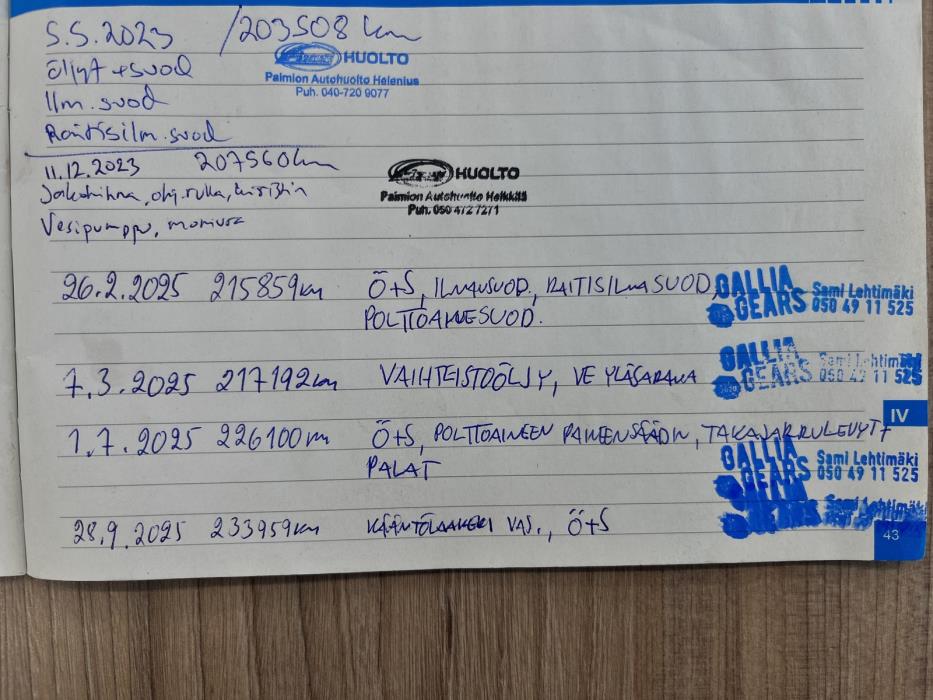 5.5.2023 /203508 km
öljyt + suod
HUOLTO
Paimion Autohuolto Helenius
Puh. 040-720 9077
Ilm. suod
Raitisilm. suod
11.12.2023 207560km
Jakohihna, ohj. rulla, kiristin
Vesipumppu,
HUOLTO
Paimion Autohuolto Heikkilä
Puh. 050 472 7271
26.2.2025 215859km Ö+S, ILMASUOD., RAITISILMASUOD,
POLTTOAINESUOD.
GALLIA GEARS Sami Lehtimäki 050 49 11 525
7.3.2025 217192km VAIHTEISTOÖLJY, VE YLÄSARANA
GALLIA GEARS Sami Lehtimäki 050 49 11 525
IV
1.7.2025 226100km Ö+S, POLTTOAINEEN PAINEENSÄÄDIN, TAKAJARRULEVYT+
PALAT
GALLIA GEARS Sami Lehtimäki 050 49 11 525
28.9.2025 233959km KÄÄNTÖLAAKERI VAS., Ö+S
GEARS Sami Lehtimäki
43